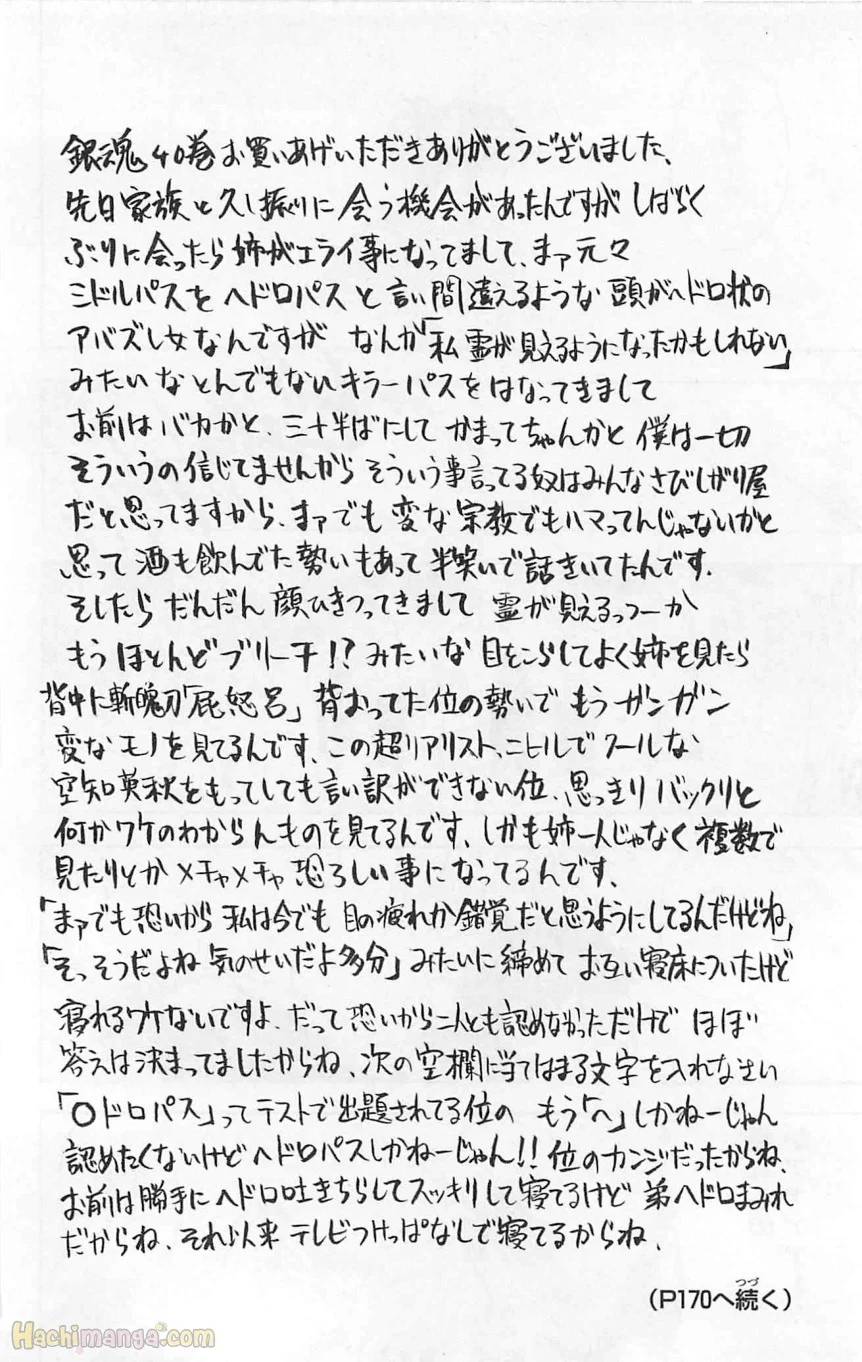 銀魂40巻お買いあげいただきありがとうございました、
先日家族と久し振りに会う機会があったんですが しばらく
ぶりに会ったら姉がエライ事になってまして、まァ元々
ミドルパスをヘドロパスと言い間違えるような頭がヘドロ状の
アバズレ女なんですが なんか「私霊が見えるようになったかもしれない」
みたいなとんでもないキラーパスをはなってきまして
お前はバカかと、三十半ばにして かまってちゃんかと 僕は一切
そういうの信じてませんから そういう事言ってる奴はみんなさびしがり屋
だと思ってますから、まァでも 変な宗教でもハマってんじゃないかと
思って 酒も飲んでた勢いもあって 半笑いで話きいてたんです、
そしたら だんだん 顔ひきつってきまして 霊が見えるっつーか
もう ほとんどブリーチ!? みたいな 目をこらしてよく姉を見たら
背中に斬魄刀「屁怒呂」背おってた位の勢いで もう ガンガン
変なモノを見てるんです、この超リアリスト、ニヒルでクールな
空知英秋をもってしても言い訳ができない位、思っきりバックリと
何かワケのわからんものを見てるんです、しかも姉一人じゃなく複数で
見たりとか メチャメチャ 恐ろしい事になってるんです、
「まァでも恐いから 私は今でも 目の疲れか錯覚だと思うようにしてるんだけどね」
「そっそうだよね 気のせいだよ多分」みたいに締めて お互い寝床についたけど
寝れるワケないですよ、だって恐いから二人とも認めなかっただけで ほぼ
答えは決まってましたからね、次の空欄に当てはまる文字を入れなさい
「○ドロパス」ってテストで出題されてる位の もう「ヘ」しかねーじゃん
認めたくないけど ヘドロパスしかねーじゃん!! 位のカンジだったからね、
お前は勝手にヘドロ吐きちらしてスッキリして寝てるけど 弟ヘドロまみれ
だからね、それ以来 テレビつけっぱなしで寝てるからね、
（P170へ続く）
Hachimanga.com